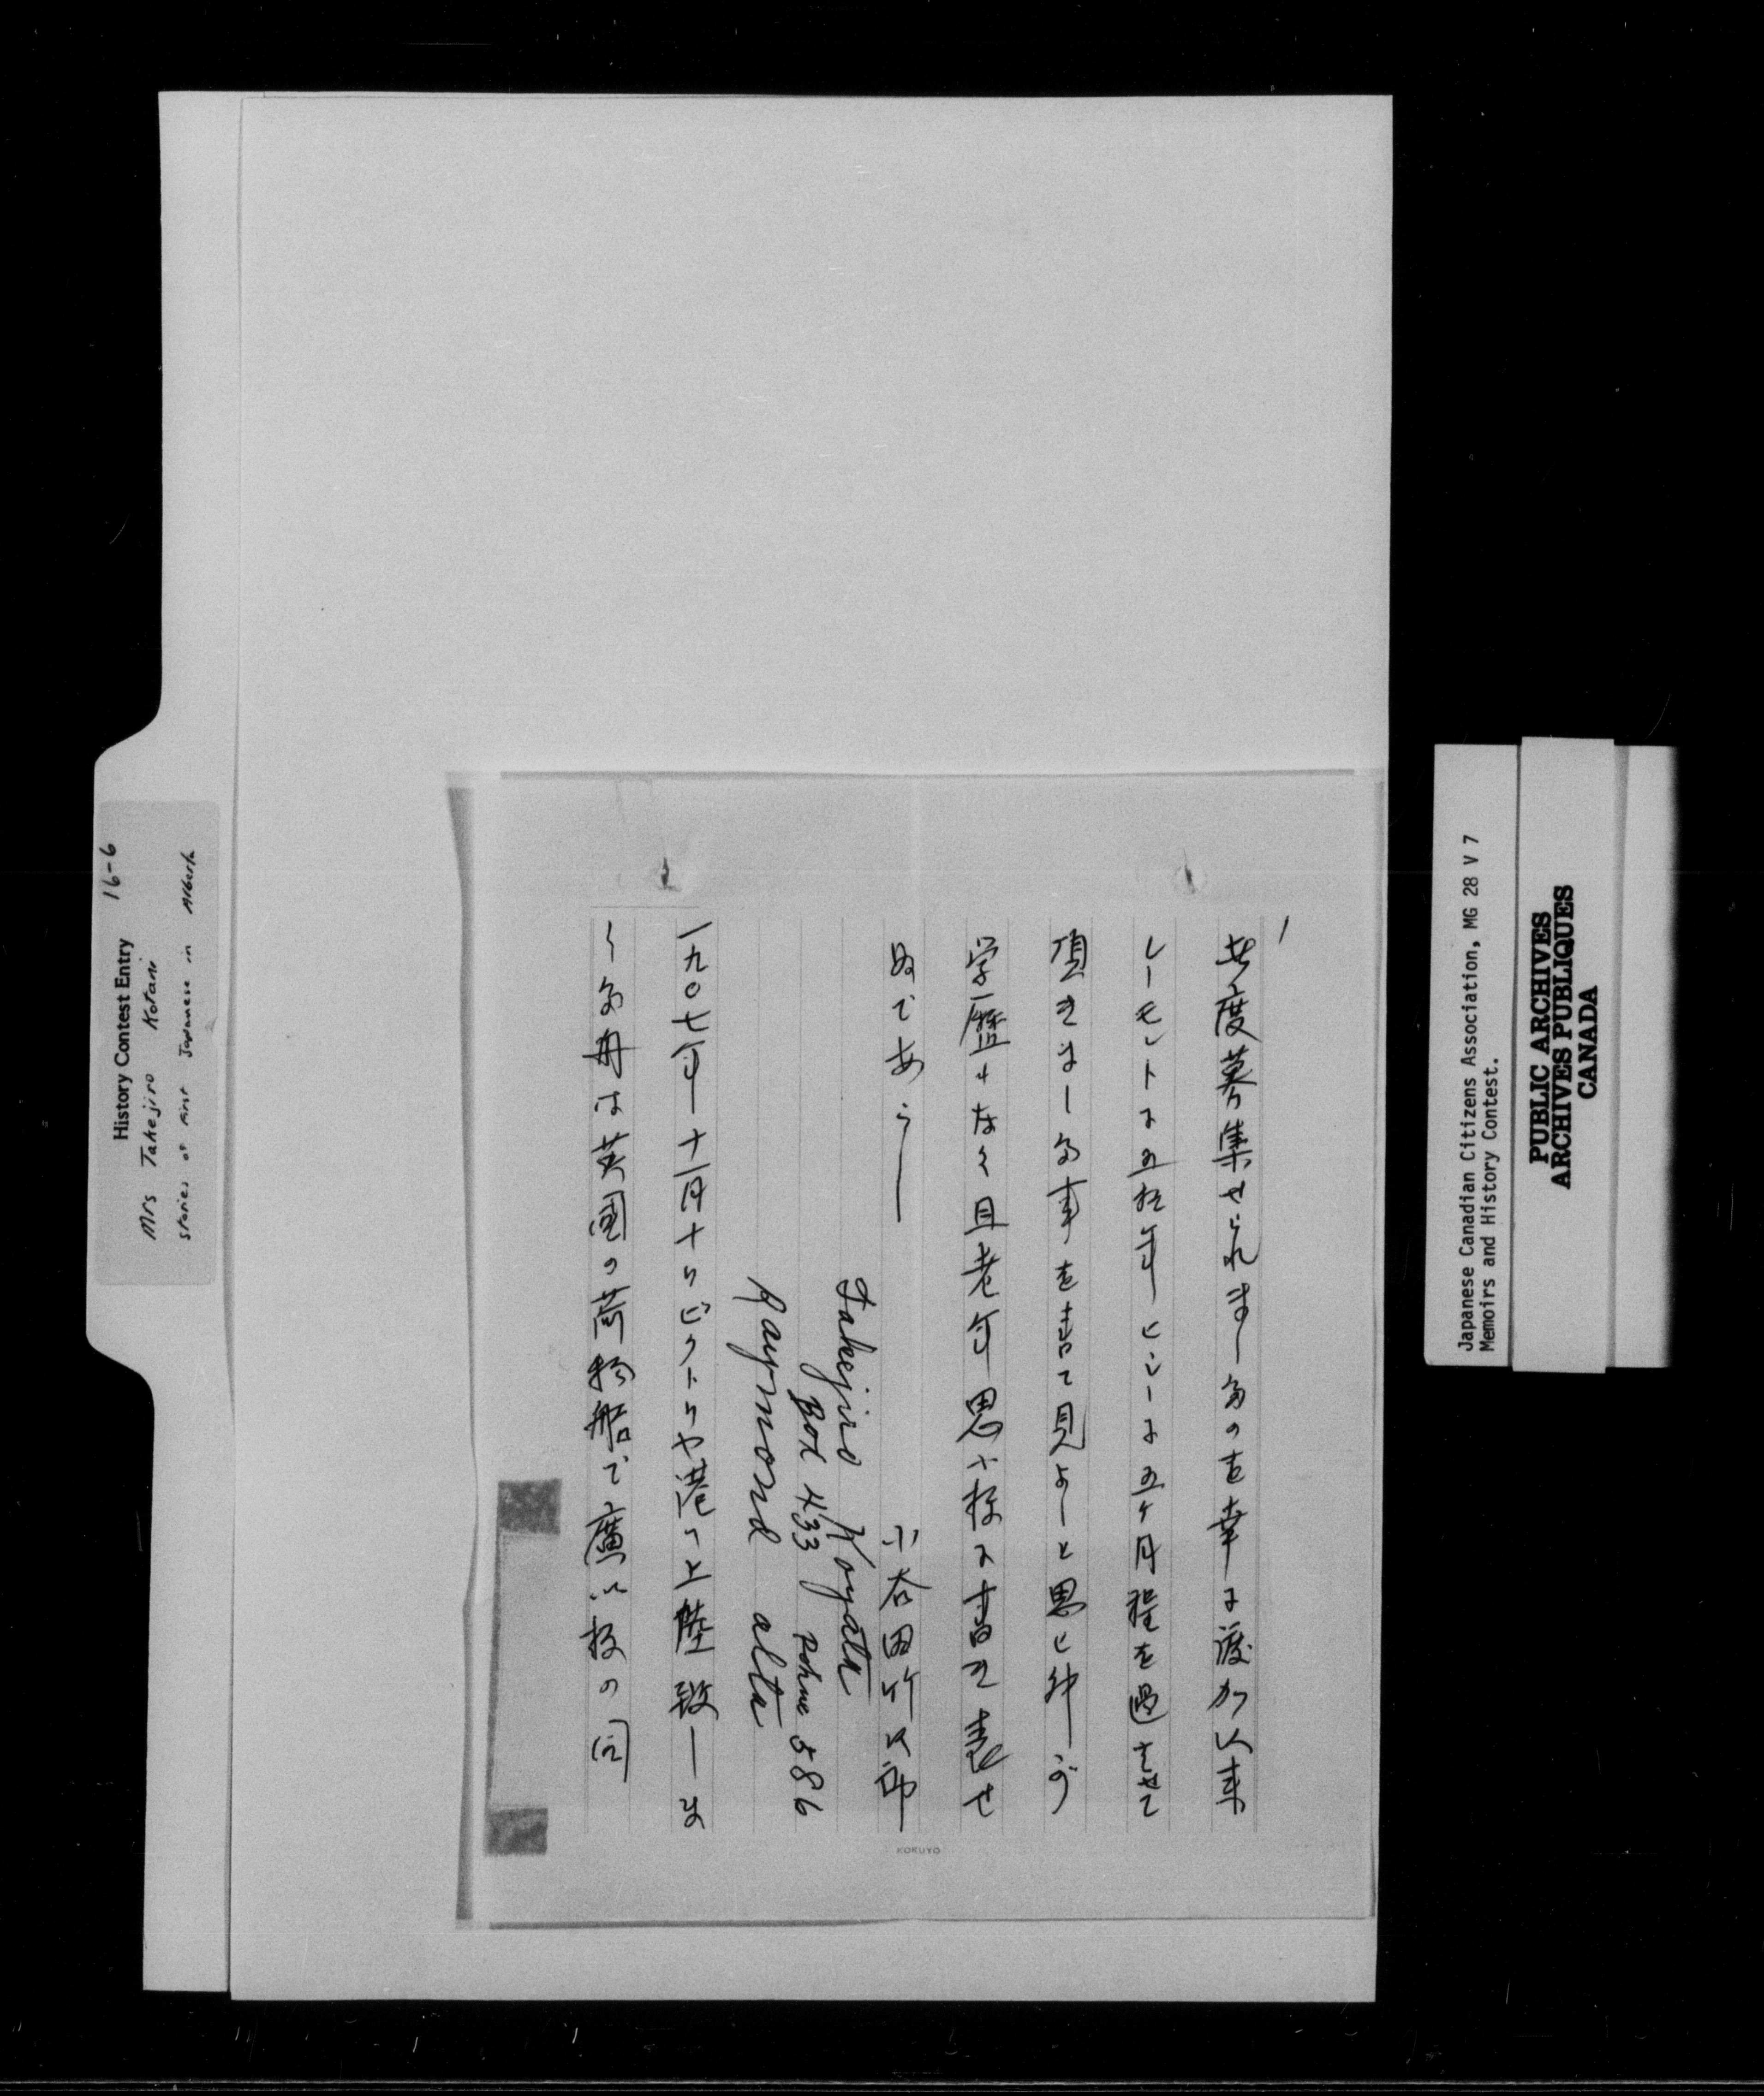 History Contest Entry 16-6
Mrs Takejiro Kotani
stories of first Japanese in Alberta
1
此度募集せられましたのを幸に渡加以来
レーモンドに五拾年ピシーに五ヶ月程を過させて
頂きました事を書て見よーと思ひ升が
学歴もなく且老年思ふ様に書き表せ
ぬであらー
小谷田竹次郎
Takejiro Koyata
Box 433 Pohne 586
Raymond alta
一九〇七年十一月十日ビクトリヤ港に上陸致しま
した舟は英国の荷物船で廣い板の間
KOKUYO
Japanese Canadian Citizens Association, MG 28 V 7
Memoirs and History Contest.
PUBLIC ARCHIVES
ARCHIVES PUBLIQUES
CANADA